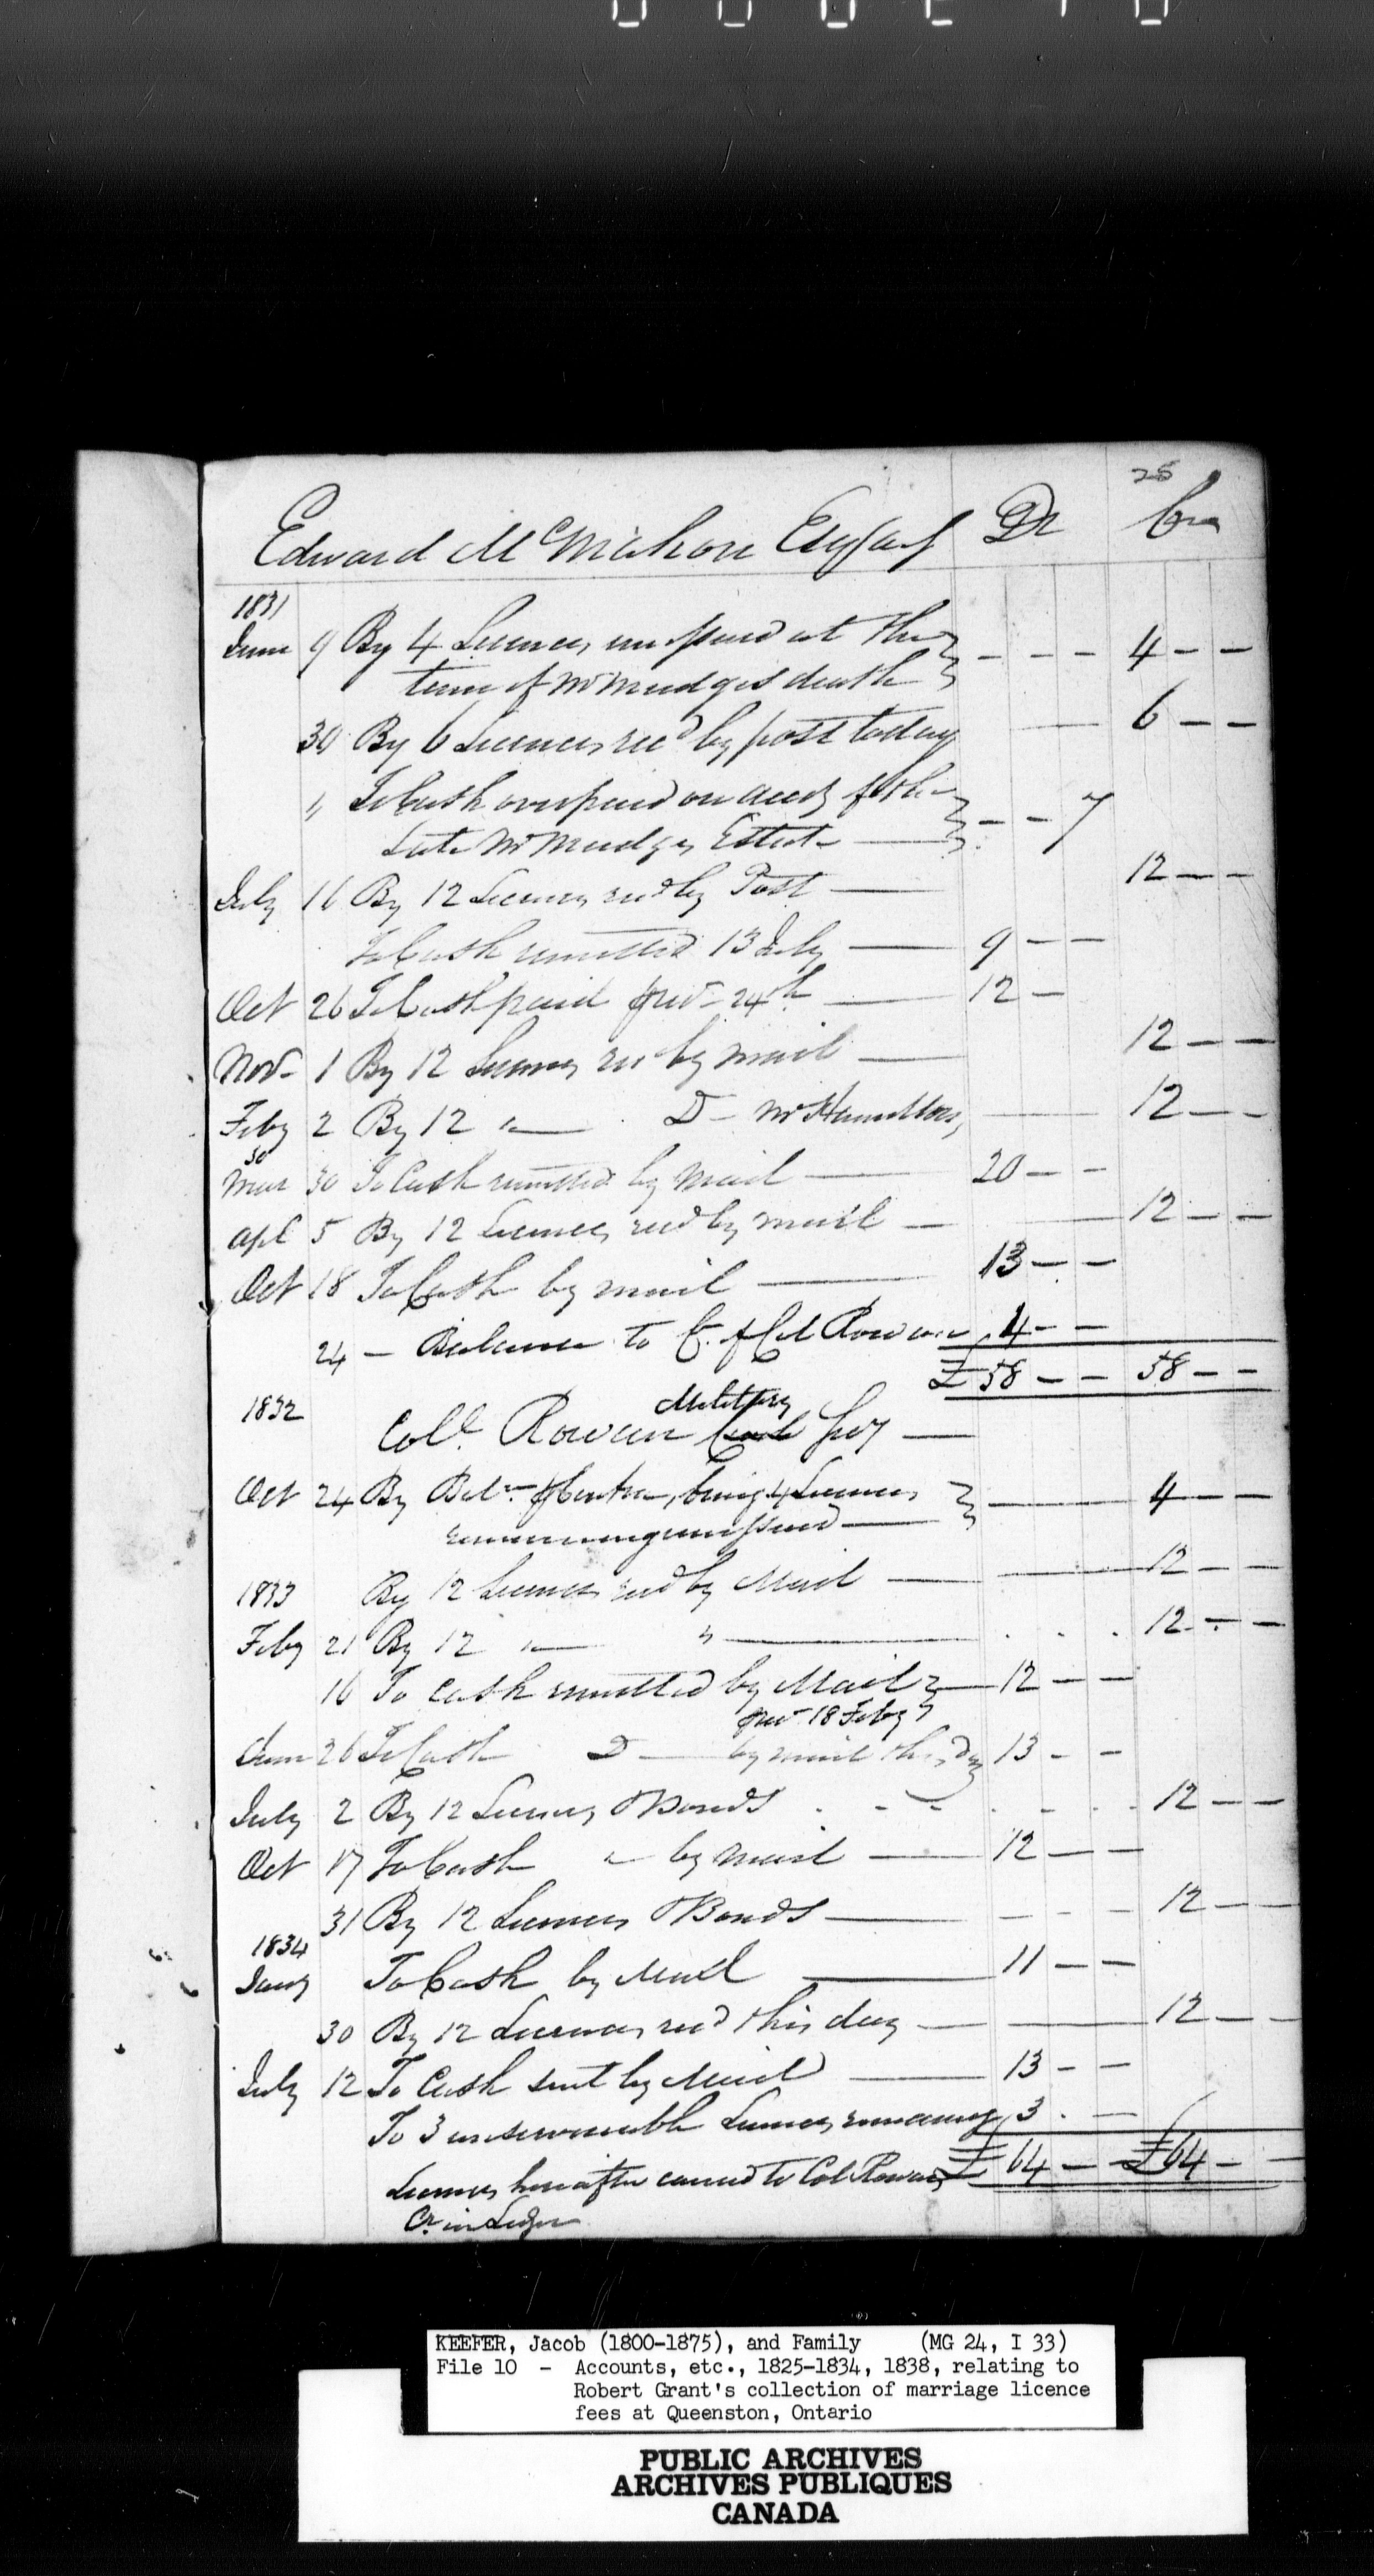 25
Edward McMahon Esq Dr Cr
1831
June 9 By 4 Licences unissued at the
time of Mr Mudges death } - - - 4 - -
30 By 6 Licences recd by post today 6 - -
" To Cash overpaid on acct of the
Late Mr Mudges Estate } - - 7
July 16 By 12 Licences recd by Post 12 - -
To Cash remitted 13 July 9 - -
Oct 26 To Cash paid 24th 12 -
Nov 1 By 12 Licences rec by mail 12 - -
Feby 2 By 12 " Do Mr Hamilton 12 - -
Mar 30 To Cash remitted by Mail 20 - -
Apl 5 By 12 Licences recd by mail 12 - -
Oct 18 To Cash by mail 13 - -
24 - Balance to C. of Col Rowan 4 - -
£58 - - 58 - -
1832
Military
Coll. Rowan Secy
Oct 24 By Balce Contra, being 4 Licences
remaining unissued } 4 - -
1833 By 12 Licences recd by Mail 12 - -
Feby 21 By 12 " " 12 - -
16 To Cash remitted by Mail 12 - -
18 Feby
June 26 To Cash Do by mail this Day 13 - -
July 2 By 12 Licences & Bonds 12 - -
Oct 17 To Cash " by mail 12 - -
31 By 12 Licences & Bonds 12 - -
1834
Jany To Cash by Mail 11 - -
30 By 12 Licences recd this day 12 - -
July 12 To Cash sent by Mail 13 - -
To 3 unserviceable Licences remaining 3 - -
£64 - - £64 - -
Licences hereafter carried to Col Rowans
Cr in Ledger
KEEFER, Jacob (1800-1875), and Family (MG 24, I 33)
File 10 - Accounts, etc., 1825-1834, 1838, relating to
Robert Grant's collection of marriage licence
fees at Queenston, Ontario
PUBLIC ARCHIVES
ARCHIVES PUBLIQUES
CANADA